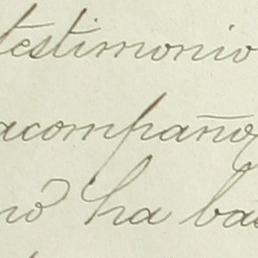 testimonio
acompaño
no ha ba